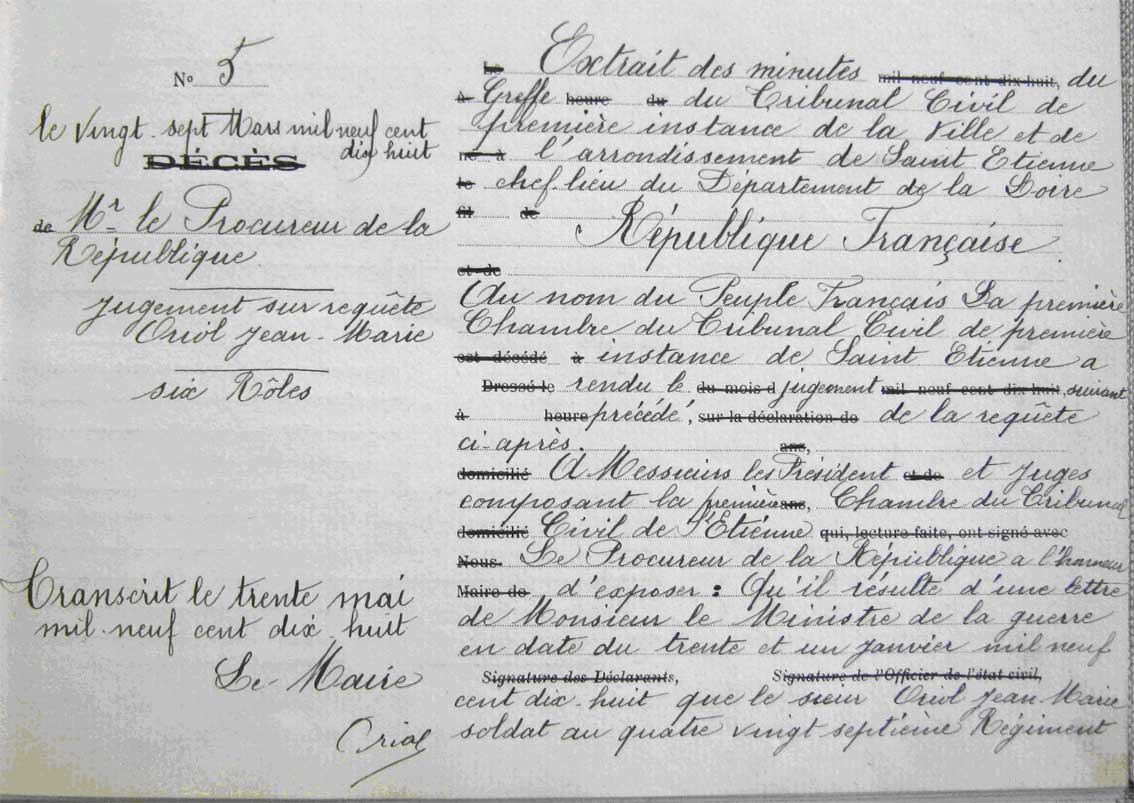 N° 5
le vingt-sept Mars mil neuf cent
dix huit
DÉCÈS
de Mr le Procureur de la
République
Jugement sur requête
Oriol Jean-Marie
six Rôles
Transcrit le trente mai
mil-neuf cent dix huit
Le Maire
Oriol
Le Extrait des minutes mil neuf cent dix-huit, du
à Greffe heure du du Tribunal Civil de
première instance de la Ville et de
né à l'arrondissement de Saint Etienne
le chef-lieu du Département de la Loire
fil de République Française
et de
Au nom du Peuple Français La première
Chambre du Tribunal Civil de première
est décédé à instance de Saint Etienne a
Dressé le rendu le du mois d jugement mil neuf cent dix-huit, suivant
à heure précédé, sur la déclaration de de la requête
ci-après. ans,
domicilié A Messieurs les Président et de et Juges
composant la première ans, Chambre du Tribunal
domicilié Civil de St Etienne qui, lecture faite, ont signé avec
Nous. Le Procureur de la République a l'honneur
Maire de d'exposer : Qu'il résulte d'une lettre
de Monsieur le Ministre de la guerre
en date du trente et un janvier mil neuf
Signature des Déclarants, Signature de l'Officier de l'état civil,
cent dix-huit que le sieur Oriol Jean-Marie
soldat au quatre vingt septième Régiment